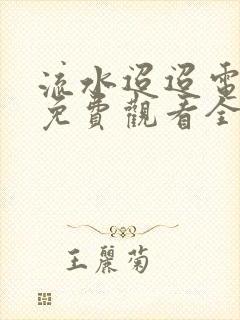 流水迢迢電
免費觀看全
王麗菊